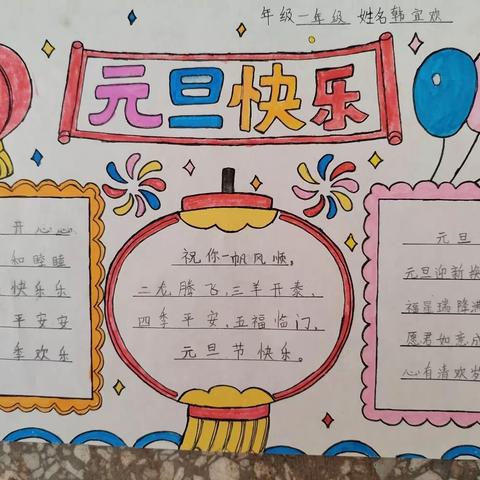 年级一年级 姓名韩宜欢
元旦快乐
开心心
和睦睦
快乐乐
平安安
季欢乐
祝你一帆风顺，
二龙腾飞，三羊开泰，
四季平安，五福临门，
元旦节快乐。
元旦
元旦迎新换
福星瑞隆满
愿君如意成
心有清欢岁